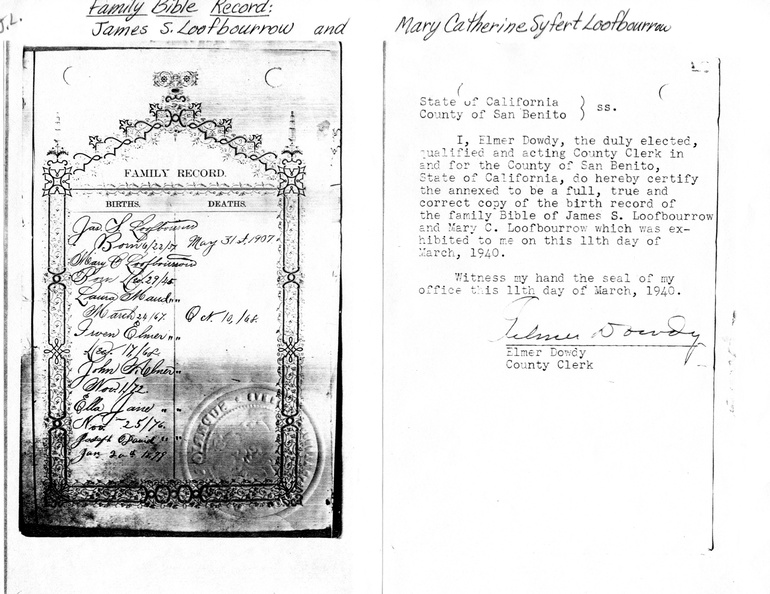 J.L.
Family Bible Record:
James S. Loofbourrow and
Mary Catherine Syfert Loofbourrow
FAMILY RECORD.
BIRTHS. DEATHS.
Jas S Loofbourrow
Born 6/22/ May 31st, 1907.
Mary C Loofbourrow
Born Dec. 29/45
Laura Maud " "
March 24/67. Oct 10, /68.
Irven Elmer " "
Dec. 17/68.
John Abner " "
Nov 1/72
Ella Jane " "
Nov. 25/76.
Joseph David " "
Jan
State of California
County of San Benito ) ss.
I, Elmer Dowdy, the duly elected,
qualified and acting County Clerk in
and for the County of San Benito,
State of California, do hereby certify
the annexed to be a full, true and
correct copy of the birth record of
the family Bible of James S. Loofbourrow
and Mary C. Loofbourrow which was ex-
hibited to me on this 11th day of
March, 1940.
Witness my hand the seal of my
office this 11th day of March, 1940.
Elmer Dowdy
Elmer Dowdy
County Clerk